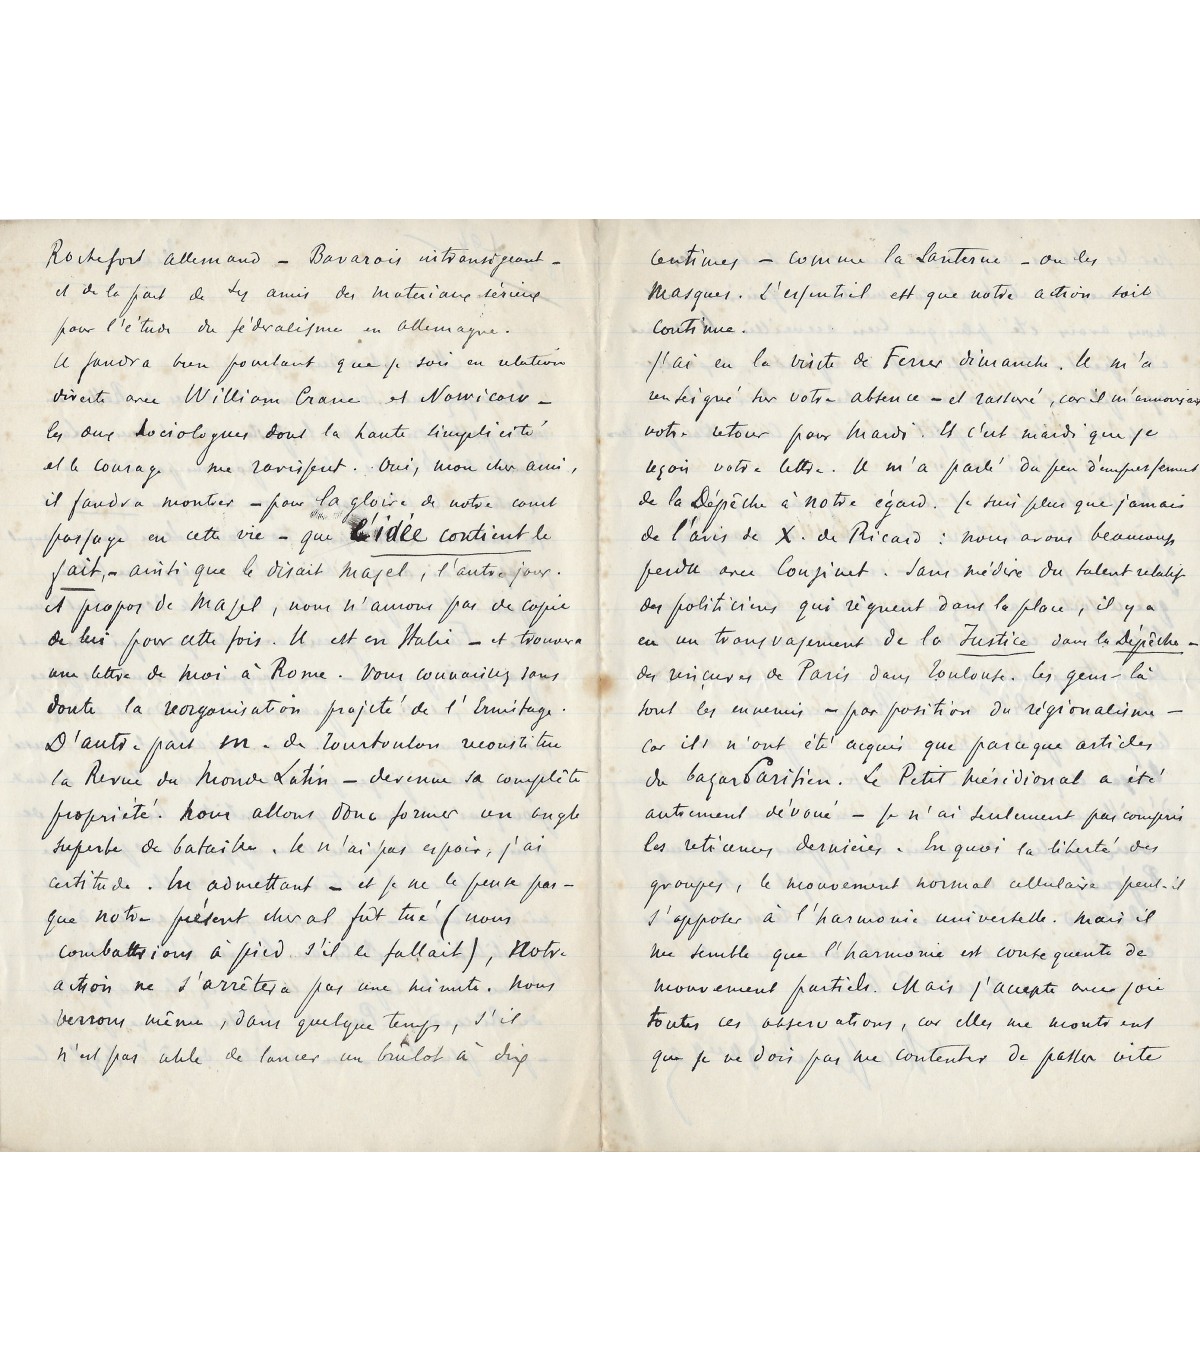 Rochefort allemand – Bavarois intransigeant –
et de la part de ses amis des materiaux sérieux
pour l'étude du fédéralisme en Allemagne.
Il faudra bien pourtant que je sois en relation
directe avec William Crane et Nowicow –
les deux sociologues dont la haute simplicité
et le courage me ravissent. Oui, mon cher ami,
il faudra montrer – pour la gloire de notre court
passage en cette vie – que l'idée contient le
fait, – ainsi que le disait Mazel, l'autre jour.
A propos de Mazel, nous n'aurons pas de copie
de lui pour cette fois. Il est en Italie – et trouvera
une lettre de moi à Rome. Vous connaissez sans
doute la reorganisation projeté de l'Ermitage.
D'autre part M. de Tourtoulon reconstitue
la Revue du Monde Latin – devenue sa complète
propriété. Nous allons donc former un angle
superbe de bataille. Je n'ai pas espoir, j'ai
certitude. En admettant – et je ne le pense pas –
que notre présent cheval fût tué (nous
combattrions à pied s'il le fallait), notre
action ne s'arrêtera pas une minute. Nous
verrons même, dans quelque temps, s'il
n'est pas utile de lancer un brûlot à dix
centimes – comme la Lanterne – ou les
Masques. L'essentiel est que notre action soit
continue.
J'ai eu la visite de Ferrer dimanche. Il m'a
renseigné sur votre absence – et rassuré, car il m'annonçait
votre retour pour Mardi. Et c'est mardi que je
reçois votre lettre. Il m'a parlé du peu d'empressement
de la Dépêche à notre égard. Je suis plus que jamais
de l'avis de X. de Ricard : nous avons beaucoup
perdu avec Couzinet. Sans médire du talent relatif
des politiciens qui règnent dans la place, il y a
eu un transvasement de la Justice dans la Dépêche –
des rinçures de Paris dans Toulouse. Ces gens-là
sont les ennemis – par position du régionalisme –
car ils n'ont été acquis que parceque articles
du bazar Parisien. Le Petit Méridional a été
autrement dévoué – je n'ai seulement pas compris
les reticences dernières. En quoi la liberté des
groupes, le mouvement normal cellulaire peut-il
s'opposer à l'harmonie universelle. Mais il
me semble que l'harmonie est conséquente de
mouvement partiels. Mais j'accepte avec joie
toutes ces observations, car elles me montrent
que je ne dois pas me contenter de passer vite